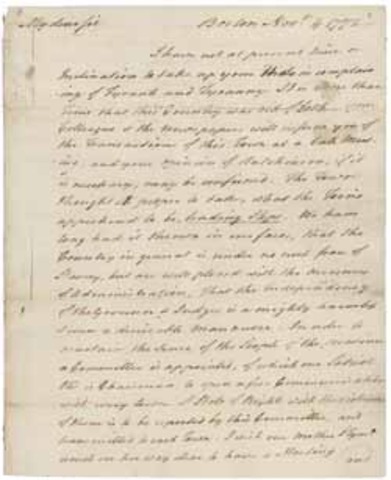 My dear Sir Boston Nov.r 4 1772
I have not at present time or
Inclination to take up your time in complain
ing of Tyrants and Tyranny. It is more than
time that this Country was rid of both.
Colleagues & the Newspapers will inform you of
the Transactions of this Town at a late Meet
ing, and your opinion of Hutchinson, if it
is necessary, may be confirmed. The Town
thought it proper to take, what the Tories
apprehend to be, leading Steps. We have
long had it thrown in our face, that the
Country in general is under no such fear of
Slavery, but are well pleased with the measures
of Administration, That the Independency
of the Governor & Judges is a mighty harmless
& even a desirable manœuvre. In order to
the Sense of the People of the
a Committee is appointed, of which our Patriot
is Chairman to open a free Communication
with every town. A State of Rights with the violations
of them is to be reported by this Committee, and
transmitted to each Town. I wish our Mother Plym.o
would see her way clear to have a Meeting
and